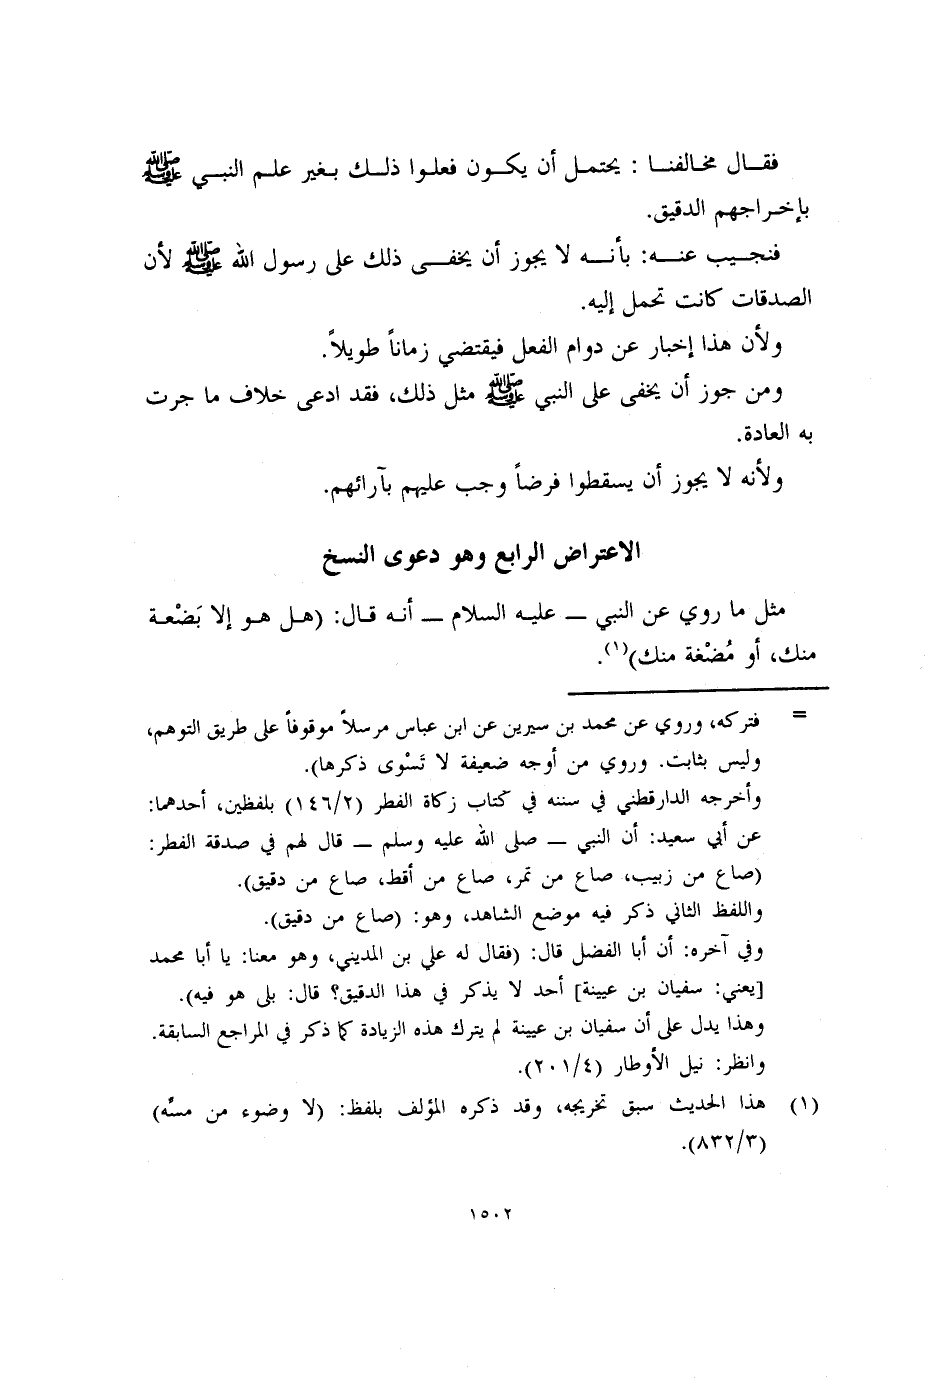 فقال مخالفنا : يحتمل أن يكون فعلوا ذلك بغير علم النبي ﷺ
بإخراجهم الدقيق.
فنجيب عنه: بأنه لا يجوز أن يخفى ذلك على رسول الله ﷺ لأن
الصدقات كانت تحمل إليه.
ولأن هذا إخبار عن دوام الفعل فيقتضي زماناً طويلاً.
ومن جوز أن يخفى على النبي ﷺ مثل ذلك، فقد ادعى خلاف ما جرت
به العادة.
ولأنه لا يجوز أن يسقطوا فرضاً وجب عليهم بآرائهم.
الاعتراض الرابع وهو دعوى النسخ
مثل ما روي عن النبي ــ عليه السلام ــ أنه قال: (هل هو إلا بَضْعة
منك، أو مُضْغة منك)(١).
= فتركه، وروي عن محمد بن سيرين عن ابن عباس مرسلاً موقوفاً على طريق التوهم،
وليس بثابت. وروي من أوجه ضعيفة لا تَسْوى ذكرها).
وأخرجه الدارقطني في سننه في كتاب زكاة الفطر (١٤٦/٢) بلفظين، أحدهما:
عن أبي سعيد: أن النبي ــ صلى الله عليه وسلم ــ قال لهم في صدقة الفطر:
(صاع من زبيب، صاع من تمر، صاع من أقط، صاع من دقيق).
واللفظ الثاني ذكر فيه موضع الشاهد، وهو: (صاع من دقيق).
وفي آخره: أن أبا الفضل قال: (فقال له علي بن المديني، وهو معنا: يا أبا محمد
[يعني: سفيان بن عيينة] أحد لا يذكر في هذا الدقيق؟ قال: بلى هو فيه).
وهذا يدل على أن سفيان بن عيينة لم يترك هذه الزيادة كما ذكر في المراجع السابقة.
وانظر: نيل الأوطار (٢٠١/٤).
(١) هذا الحديث سبق تخريجه، وقد ذكره المؤلف بلفظ: (لا وضوء من مسِّه)
(٨٣٢/٣).
١٥٠٢